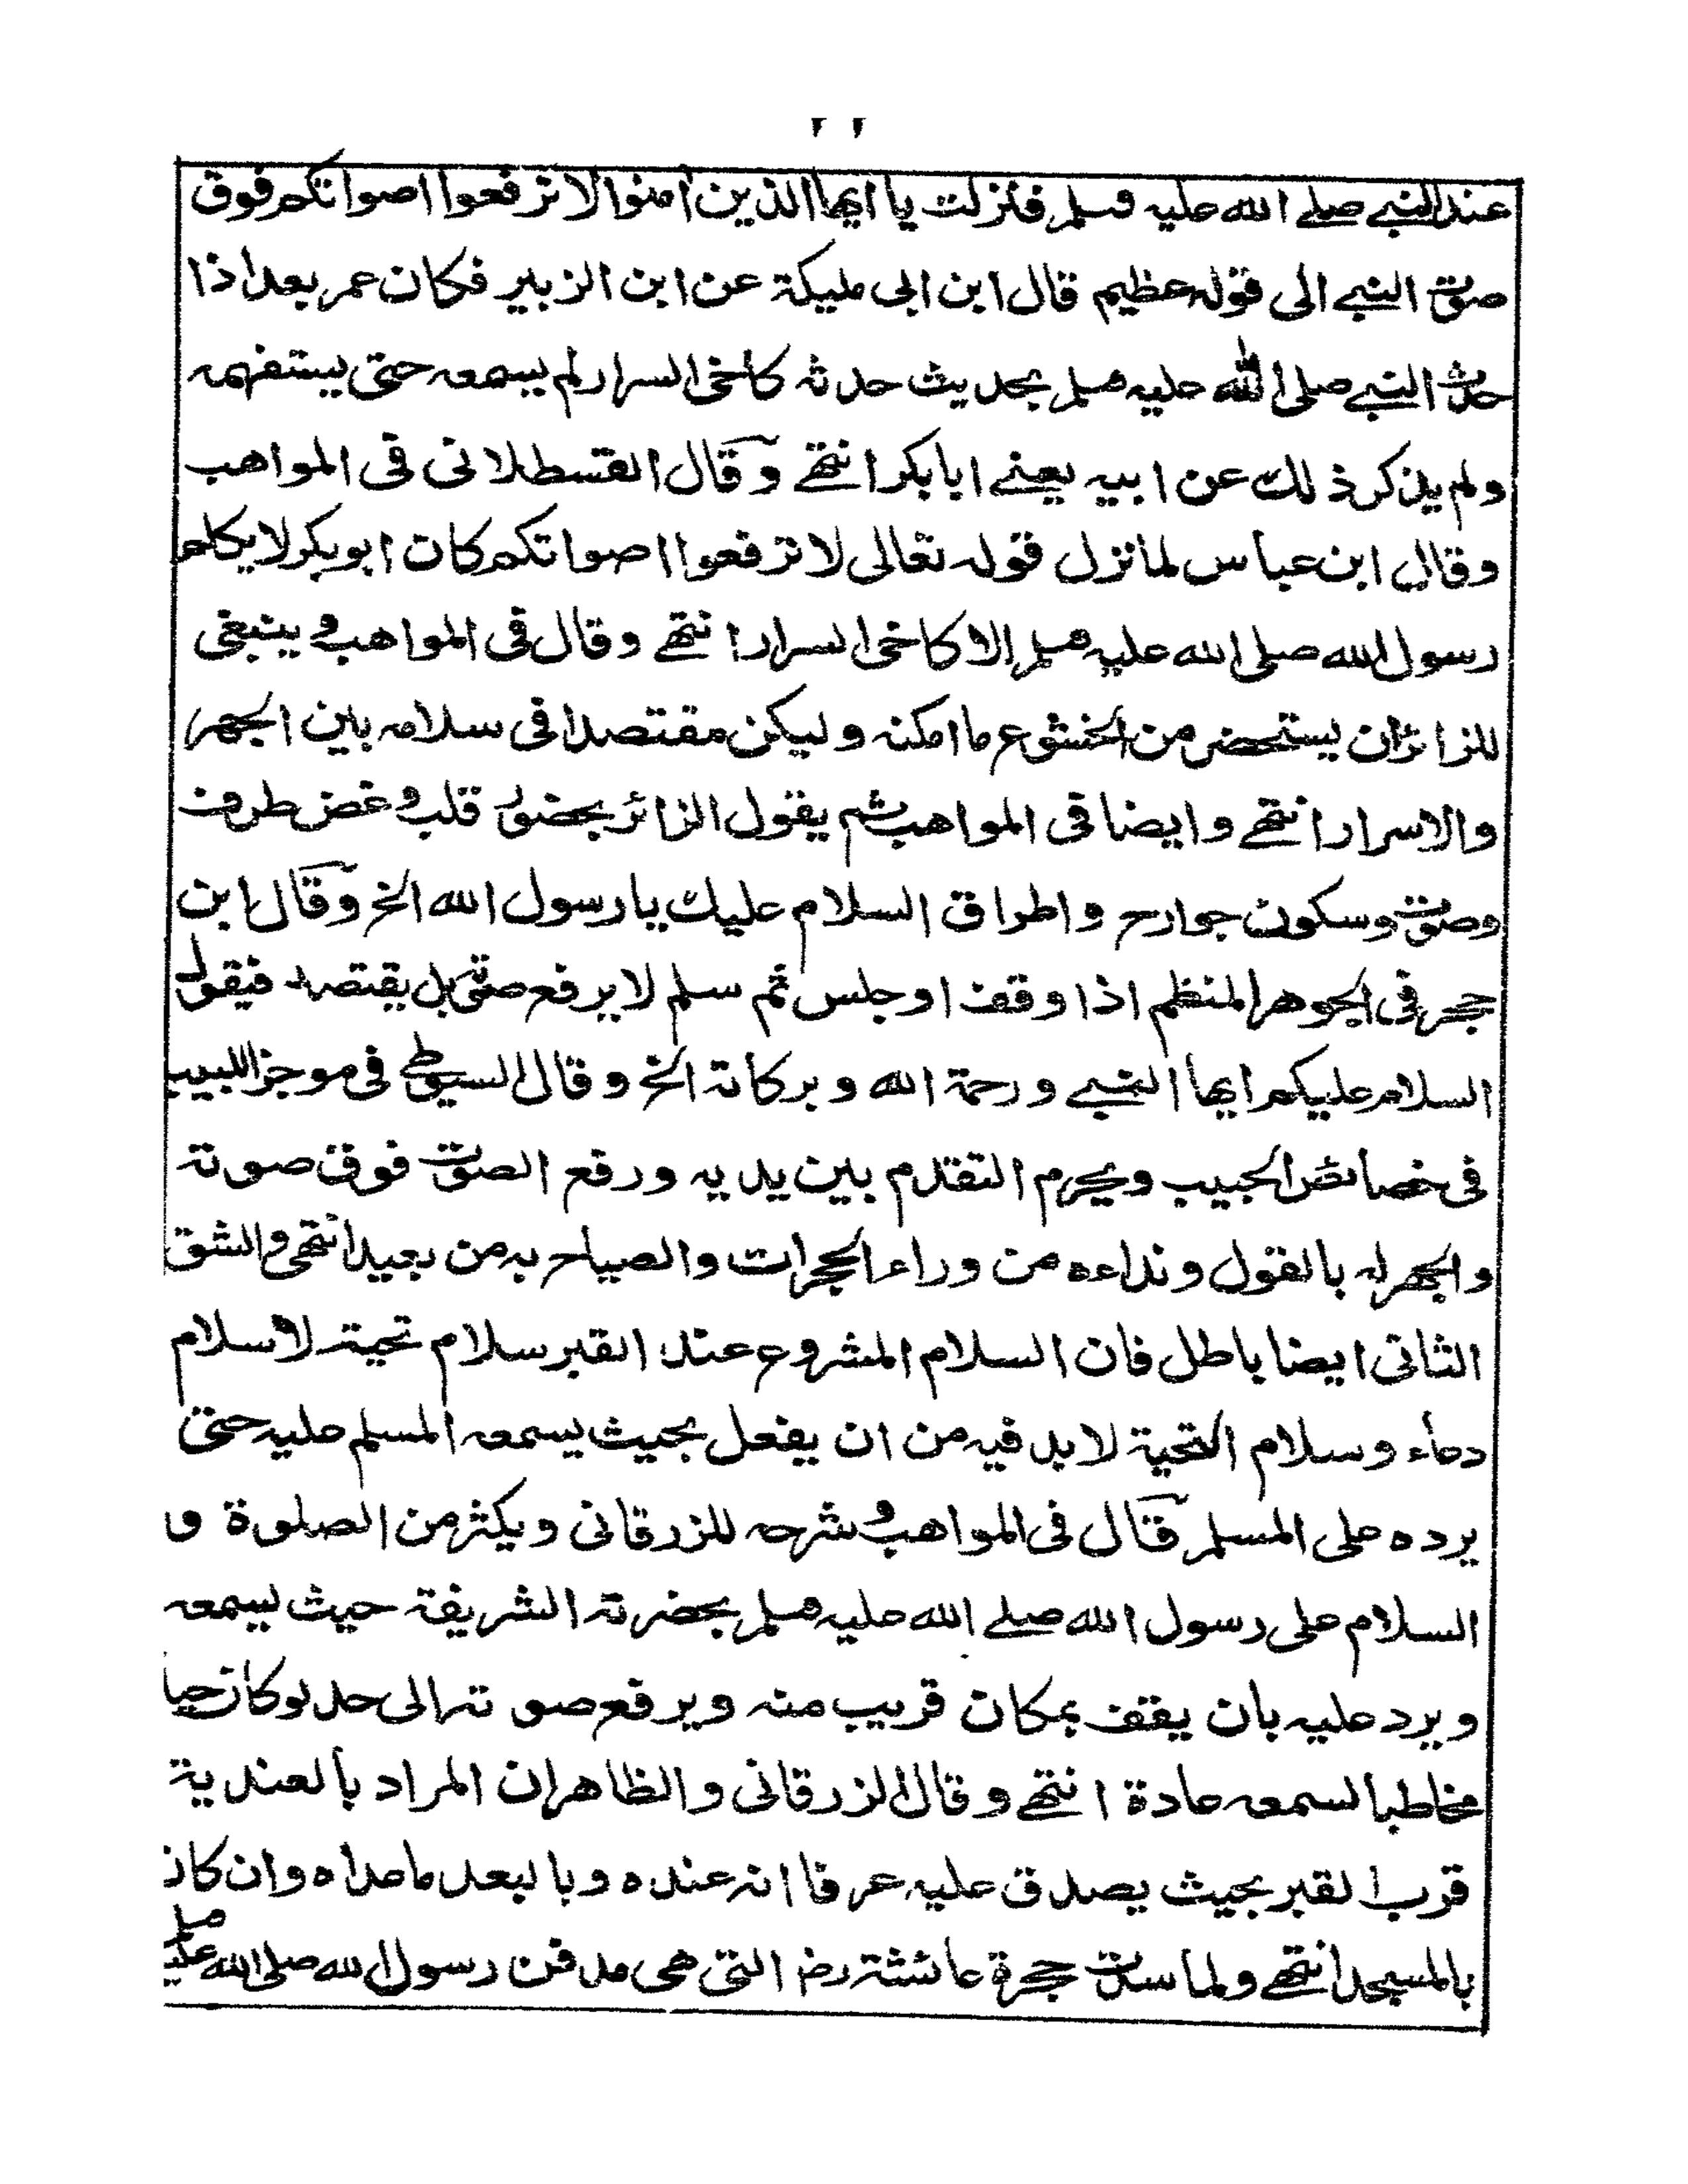 ٢٢
عند النبي صلے الله عليه وسلم فنزلت يا ايها الذين امنوا لا ترفعوا اصواتكم فوق
صوت النبے الى قوله عظيم قال ابن ابى مليكة عن ابن الزبير فكان عمر بعد اذا
حدث النبے صلى الله عليه وسلم بحديث حدثه كاخى السرار لم يسمعه حتى يستفهمه
ولم يذكر ذلك عن ابيه يعنے ابا بكر انتهے وقال القسطلانى فى المواهب
وقال ابن عباس لما نزل قوله تعالى لا ترفعوا اصواتكم كان ابو بكر لا يكلم
رسول الله صلى الله عليه وسلم الا كاخى السرار انتهے وقال فى المواهب و ينبغى
للزائر ان يستحضر من الخشوع ما امكنه وليكن مقتصدا فى سلامه بين الجهر
والاسرار انتهے وايضا فى المواهب ثم يقول الزائر بحضور قلب و غض طرف
وصوت وسكون جوارح واطراق السلام عليك يا رسول الله الخ وقال ابن
حجر فى الجوهر المنظم اذا وقف او جلس ثم سلم لا يرفع صوته بل يقتصد فيقول
السلام عليكم ايها النبے ورحمة الله وبركاته الخ وقال السيوطے فى موجز اللبيب
فى خصائص الحبيب ويحرم التقدم بين يديه ورفع الصوت فوق صوته
والجهر له بالقول ونداءه من وراء الحجرات والصياح به من بعيد انتهى والشق
الثانى ايضا باطل فان السلام المشروع عند القبر سلام تحية لا سلام
دعاء وسلام التحية لا بد فيه من ان يفعل بحيث يسمعه المسلم عليه حتى
يرده على المسلم قال فى المواهب و شرحه للزرقانى ويكثر من الصلوة و
السلام على رسول الله صلے الله عليه وسلم بحضرته الشريفة حيث يسمعه
ويرد عليه بان يقف بمكان قريب منه ويرفع صوته الى حد لو كان حيا
مخاطبا لسمعه عادة انتهے وقال الزرقانى والظاهر ان المراد بالعندية
قرب القبر بحيث يصدق عليه عرفا انه عنده وبالبعد ما عداه وان كان
بالمسجد انتهے ولما سدت حجرة عائشة رض التى هى مدفن رسول الله صلى الله عليه وسلم